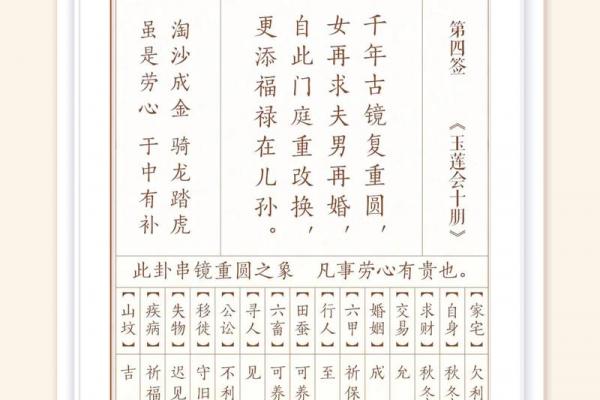 第四签 《玉莲会十册》
千年古镜复重圆，
女再求夫男再婚，
自此门庭重改换，
更添福禄在儿孙。
淘沙成金 骑龙踏虎
虽是劳心 于中有补
此卦串镜重圆之象 凡事劳心有贵也。
【家宅】欠利
【自身】秋冬
【求财】秋冬
【交易】允
【婚姻】成
【六甲】祈保
【行人】至
【田蚕】可养
【六畜】可养
【寻人】见
【公讼】不利
【移徙】守旧
【失物】迟见
【疾病】祈福
【山坟】吉